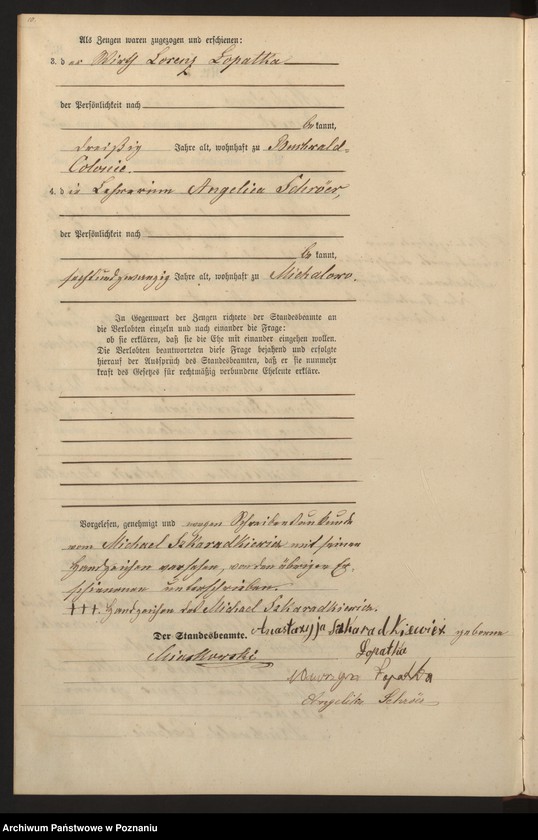 10.
Als Zeugen waren zugezogen und erschienen:
3. der Wirth Lorenz Lopatka
der Persönlichkeit nach
bekannt,
dreißig Jahre alt, wohnhaft zu Buchwald-
Colonie.
4. die Lehrerin Angelica Schröer,
der Persönlichkeit nach
bekannt,
sechsundzwanzig Jahre alt, wohnhaft zu Michalowo.
In Gegenwart der Zeugen richtete der Standesbeamte an
die Verlobten einzeln und nach einander die Frage:
ob sie erklären, daß sie die Ehe mit einander eingehen wollen.
Die Verlobten beantworteten diese Frage bejahend und erfolgte
hierauf der Ausspruch des Standesbeamten, daß er sie nunmehr
kraft des Gesetzes für rechtmäßig verbundene Eheleute erkläre.
Vorgelesen, genehmigt und wegen Schreibensunkunde
vom Michael Szkaradkiewicz mit seinen
Handzeichen versehen, von den übrigen Er-
schienenen unterschrieben.
+++. Handzeichen des Michael Szkaradkiewicz.
Der Standesbeamte. Anastazyja Szkaradkiewicz geborene
Lopatka
Lopatka
Angelika
Archiwum Państwowe w Poznaniu